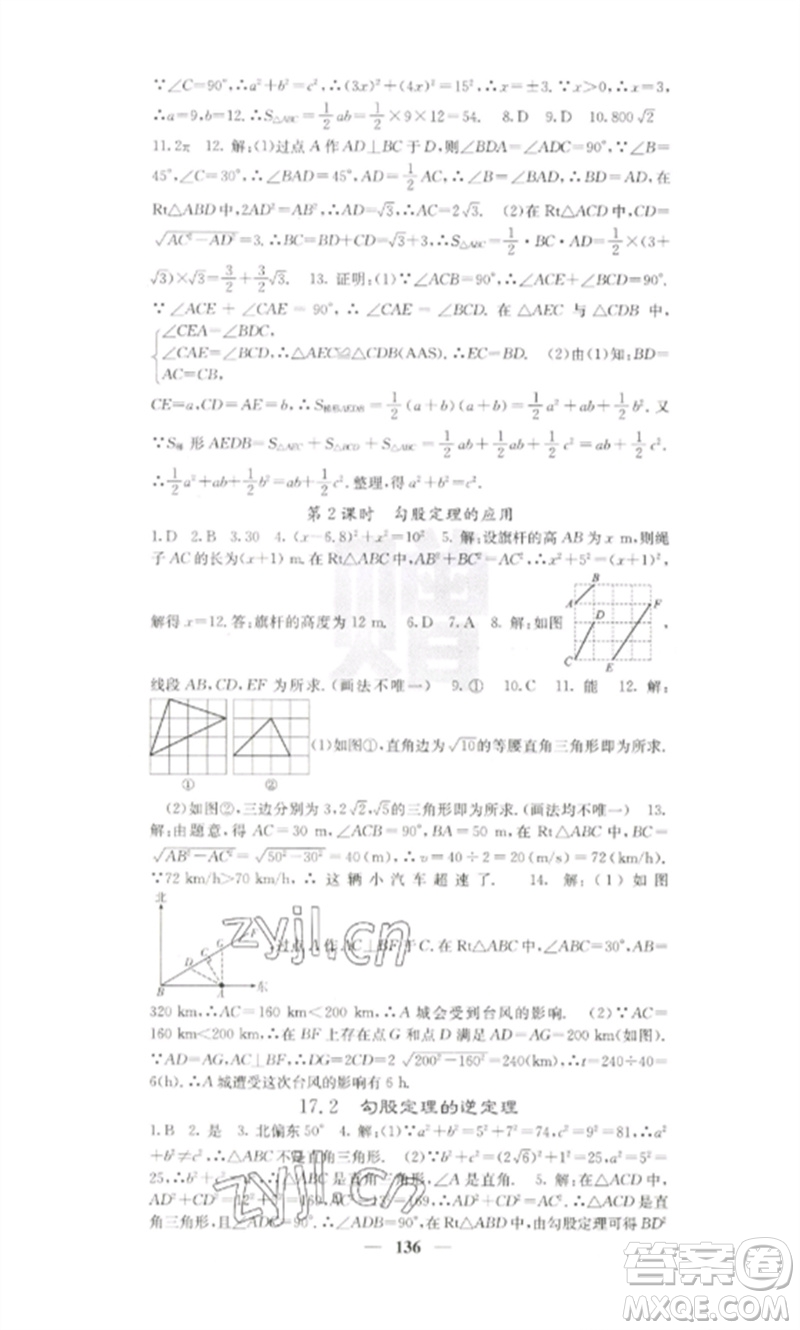 ∵∠C=90°,∴a²+b²=c²,∴(3x)²+(4x)²=15²,∴x=±3.∵x>0,∴x=3,
∴a=9,b=12.∴S△ABC=1/2ab=1/2×9×12=54. 8.D 9.D 10.800√2
11.2π 12.解:(1)过点A作AD⊥BC于D,则∠BDA=∠ADC=90°,∵∠B=
45°,∠C=30°,∴∠BAD=45°,∴∠B=∠BAD,∴BD=AD,在
Rt△ABD中,2AD²=AB²,∴AD=√3,∴AC=2√3. (2)在Rt△ACD中,CD=
√(AC²-AD²)=3.∴BC=BD+CD=√3+3,∴S△ABC=1/2·BC·AD=1/2×(3+
√3)×√3=3/2+3/2√3. 13.证明:(1)∵∠ACB=90°,∴∠ACE+∠BCD=90°.
∵∠ACE+∠CAE=90°,∴∠CAE=∠BCD.在△AEC与△CDB中,
{∠CEA=∠BDC,
∠CAE=∠BCD,∴△AEC≌△CDB(AAS).∴EC=BD. (2)由(1)知:BD=
AC=CB,
CE=a,CD=AE=b,∴S梯形AEDB=1/2(a+b)(a+b)=1/2a²+ab+1/2b².又
∵S梯形AEDB=S△AEC+S△BCD+S△ABC=1/2ab+1/2ab+1/2c²=ab+1/2c².
∴1/2a²+ab+1/2b²=ab+1/2c².整理,得a²+b²=c².
第2课时 勾股定理的应用
1.D 2.B 3.30 4.(x-6.8)²+x²=10² 5.解:设旗杆的高AB为x m,则绳
子AC的长为(x+1) m.在Rt△ABC中,AB²+BC²=AC²,∴x²+5²=(x+1)²,
解得x=12.答:旗杆的高度为12 m. 6.D 7.A 8.解:如图
A
B
C
D
E
F
,
赠
线段AB,CD,EF为所求.(画法不唯一) 9.① 10.C 11.能 12.解:
①
②
(1)如图①,直角边为√10的等腰直角三角形即为所求.
(2)如图②,三边分别为3,2√2,√5的三角形即为所求.(画法均不唯一) 13.
解:由题意,得AC=30 m,∠ACB=90°,BA=50 m,在Rt△ABC中,BC=
√(AB²-AC²)=√(50²-30²)=40(m),∴v=40÷2=20(m/s)=72(km/h).
∵72 km/h>70 km/h,∴这辆小汽车超速了. 14.解:(1)如图
北
B
D
C
G
F
A
东
,过点A作AC⊥BF于C.在Rt△ABC中,∠ABC=30°,AB=
320 km,∴AC=160 km<200 km,∴A城会受到台风的影响. (2)∵AC=
160 km<200 km,∴在BF上存在点G和点D满足AD=AG=200 km(如图).
∵AD=AG,AC⊥BF,∴DG=2CD=2√(200²-160²)=240(km),∴240÷40=
6(h).∴A城遭受这次台风的影响有6 h.
17.2 勾股定理的逆定理
1.B 2.是 3.北偏东50° 4.解:(1)∵a²+b²=5²+7²=74,c²=8²=64,∴a²
+b²≠c²,∴△ABC不是直角三角形. (2)∵b²+c²=(2√6)²+1²=25,a²=5²=
25,∴b²+c²=a²,∴△ABC是直角三角形,∠A是直角. 5.解:在△ACD中,∵
AD²+CD²=12²+5²=169,AC²=13²=169,∴AD²+CD²=AC²,∴△ACD是直
角三角形,且∠ADC=90°,∴∠ADB=90°,在Rt△ABD中,由勾股定理可得BD²
— 136 —
zyjl.cn
zyjl.cn
答案卷
MXQE.COM